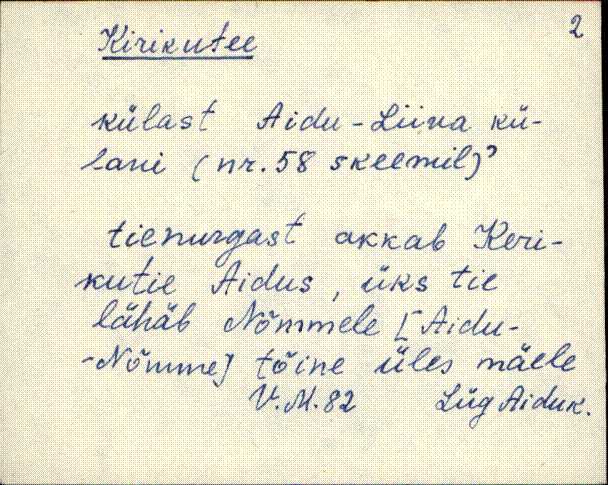 2
Kirikutee
külast Aidu-Liiva kü-
lani (nr. 58 skeemil)?
tienurgast akkab Keri-
kutie Aidus, üks tie
lähäb Nõmmele [Aidu-
-Nõmme] tõine üles mäele
V.M. 82 Lüg Aiduk.